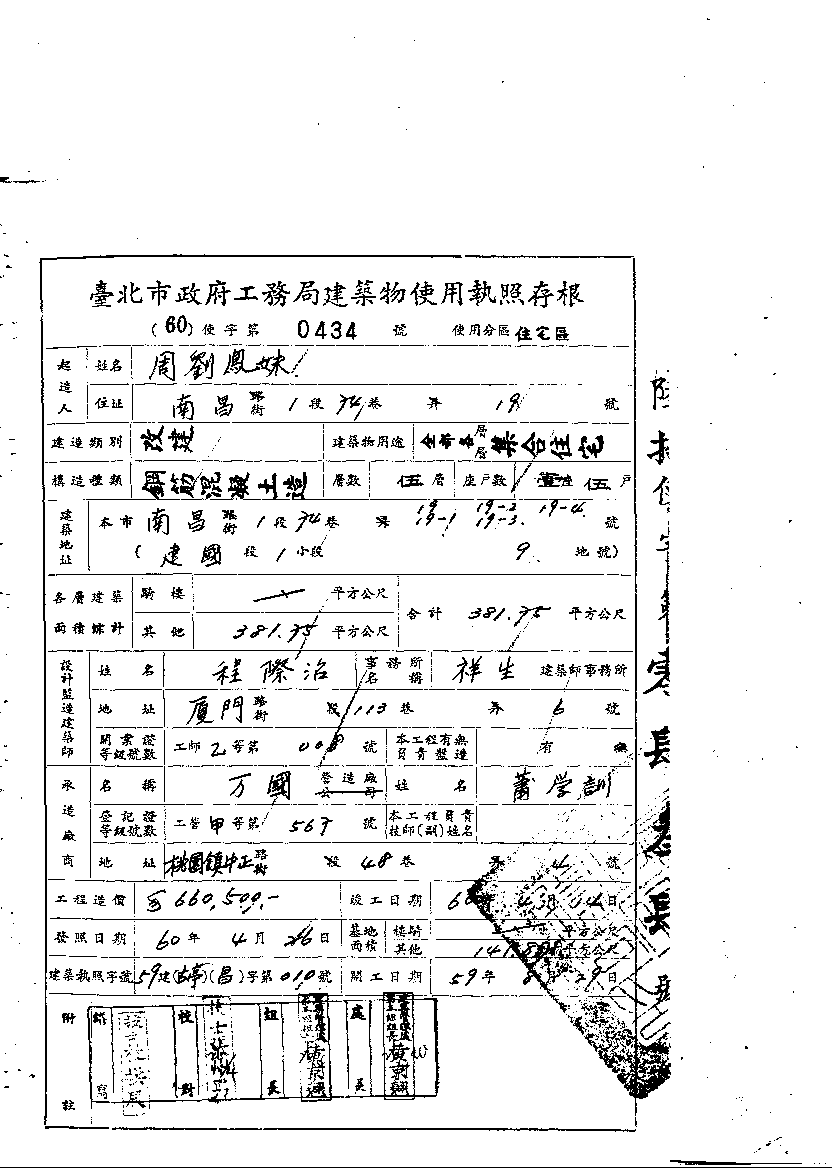 臺北市政府工務局建築物使用執照存根
(60)使字第 0434 號 使用分區 住宅區
起造人 姓名 周劉鳳妹
住址 南昌路街 1段 34巷 弄 19 號
建造類別 改建 建築物用途 全部各層集合住宅
構造種類 鋼筋混凝土造 層數 伍層 座戶數 壹座 伍戶
建築地址 本市 南昌路街 1段 34巷 弄 19 19-1 19-2 19-3 19-4 號
(建國 段 1 小段 9 地號)
各層建築面積總計 騎樓 平方公尺 合計 381.75 平方公尺
其他 381.75 平方公尺
設計監造建築師 姓名 程際治 事務所名稱 祥生 建築師事務所
地址 厦門路街 段 113 巷 弄 6 號
開業證等級號數 工師乙等第 008 號 本工程有無負責監造 有 無
承造廠商 名稱 万國 營造廠公司 姓名 蕭学訓
登記證等級號數 工營甲等第 567 號 本工程負責技師(副)姓名
地址 桃園鎮中正路街 段 48 巷 弄 4 號
工程造價 660,500.- 竣工日期 60年 4月 04日
發照日期 60年 4月 26日 基地面積 騎樓 平方公尺
其他 平方公尺
建築執照字號 59建()(昌)字第010號 開工日期 59年 8月 29日
附註 繕寫 校對 組長 處長